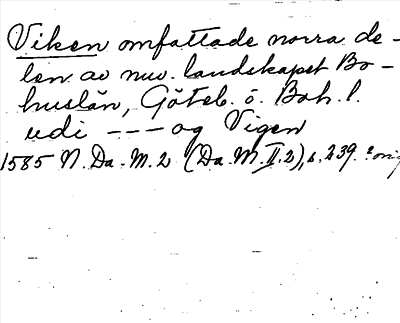 Viken omfattade norra de-
len av nuv. landskapet Bo-
huslän, Göteb. o. Boh. l.
udi --- og Vigen
1585 N. Da. M. 2 (Da. M. II. 2), s. 239. orig